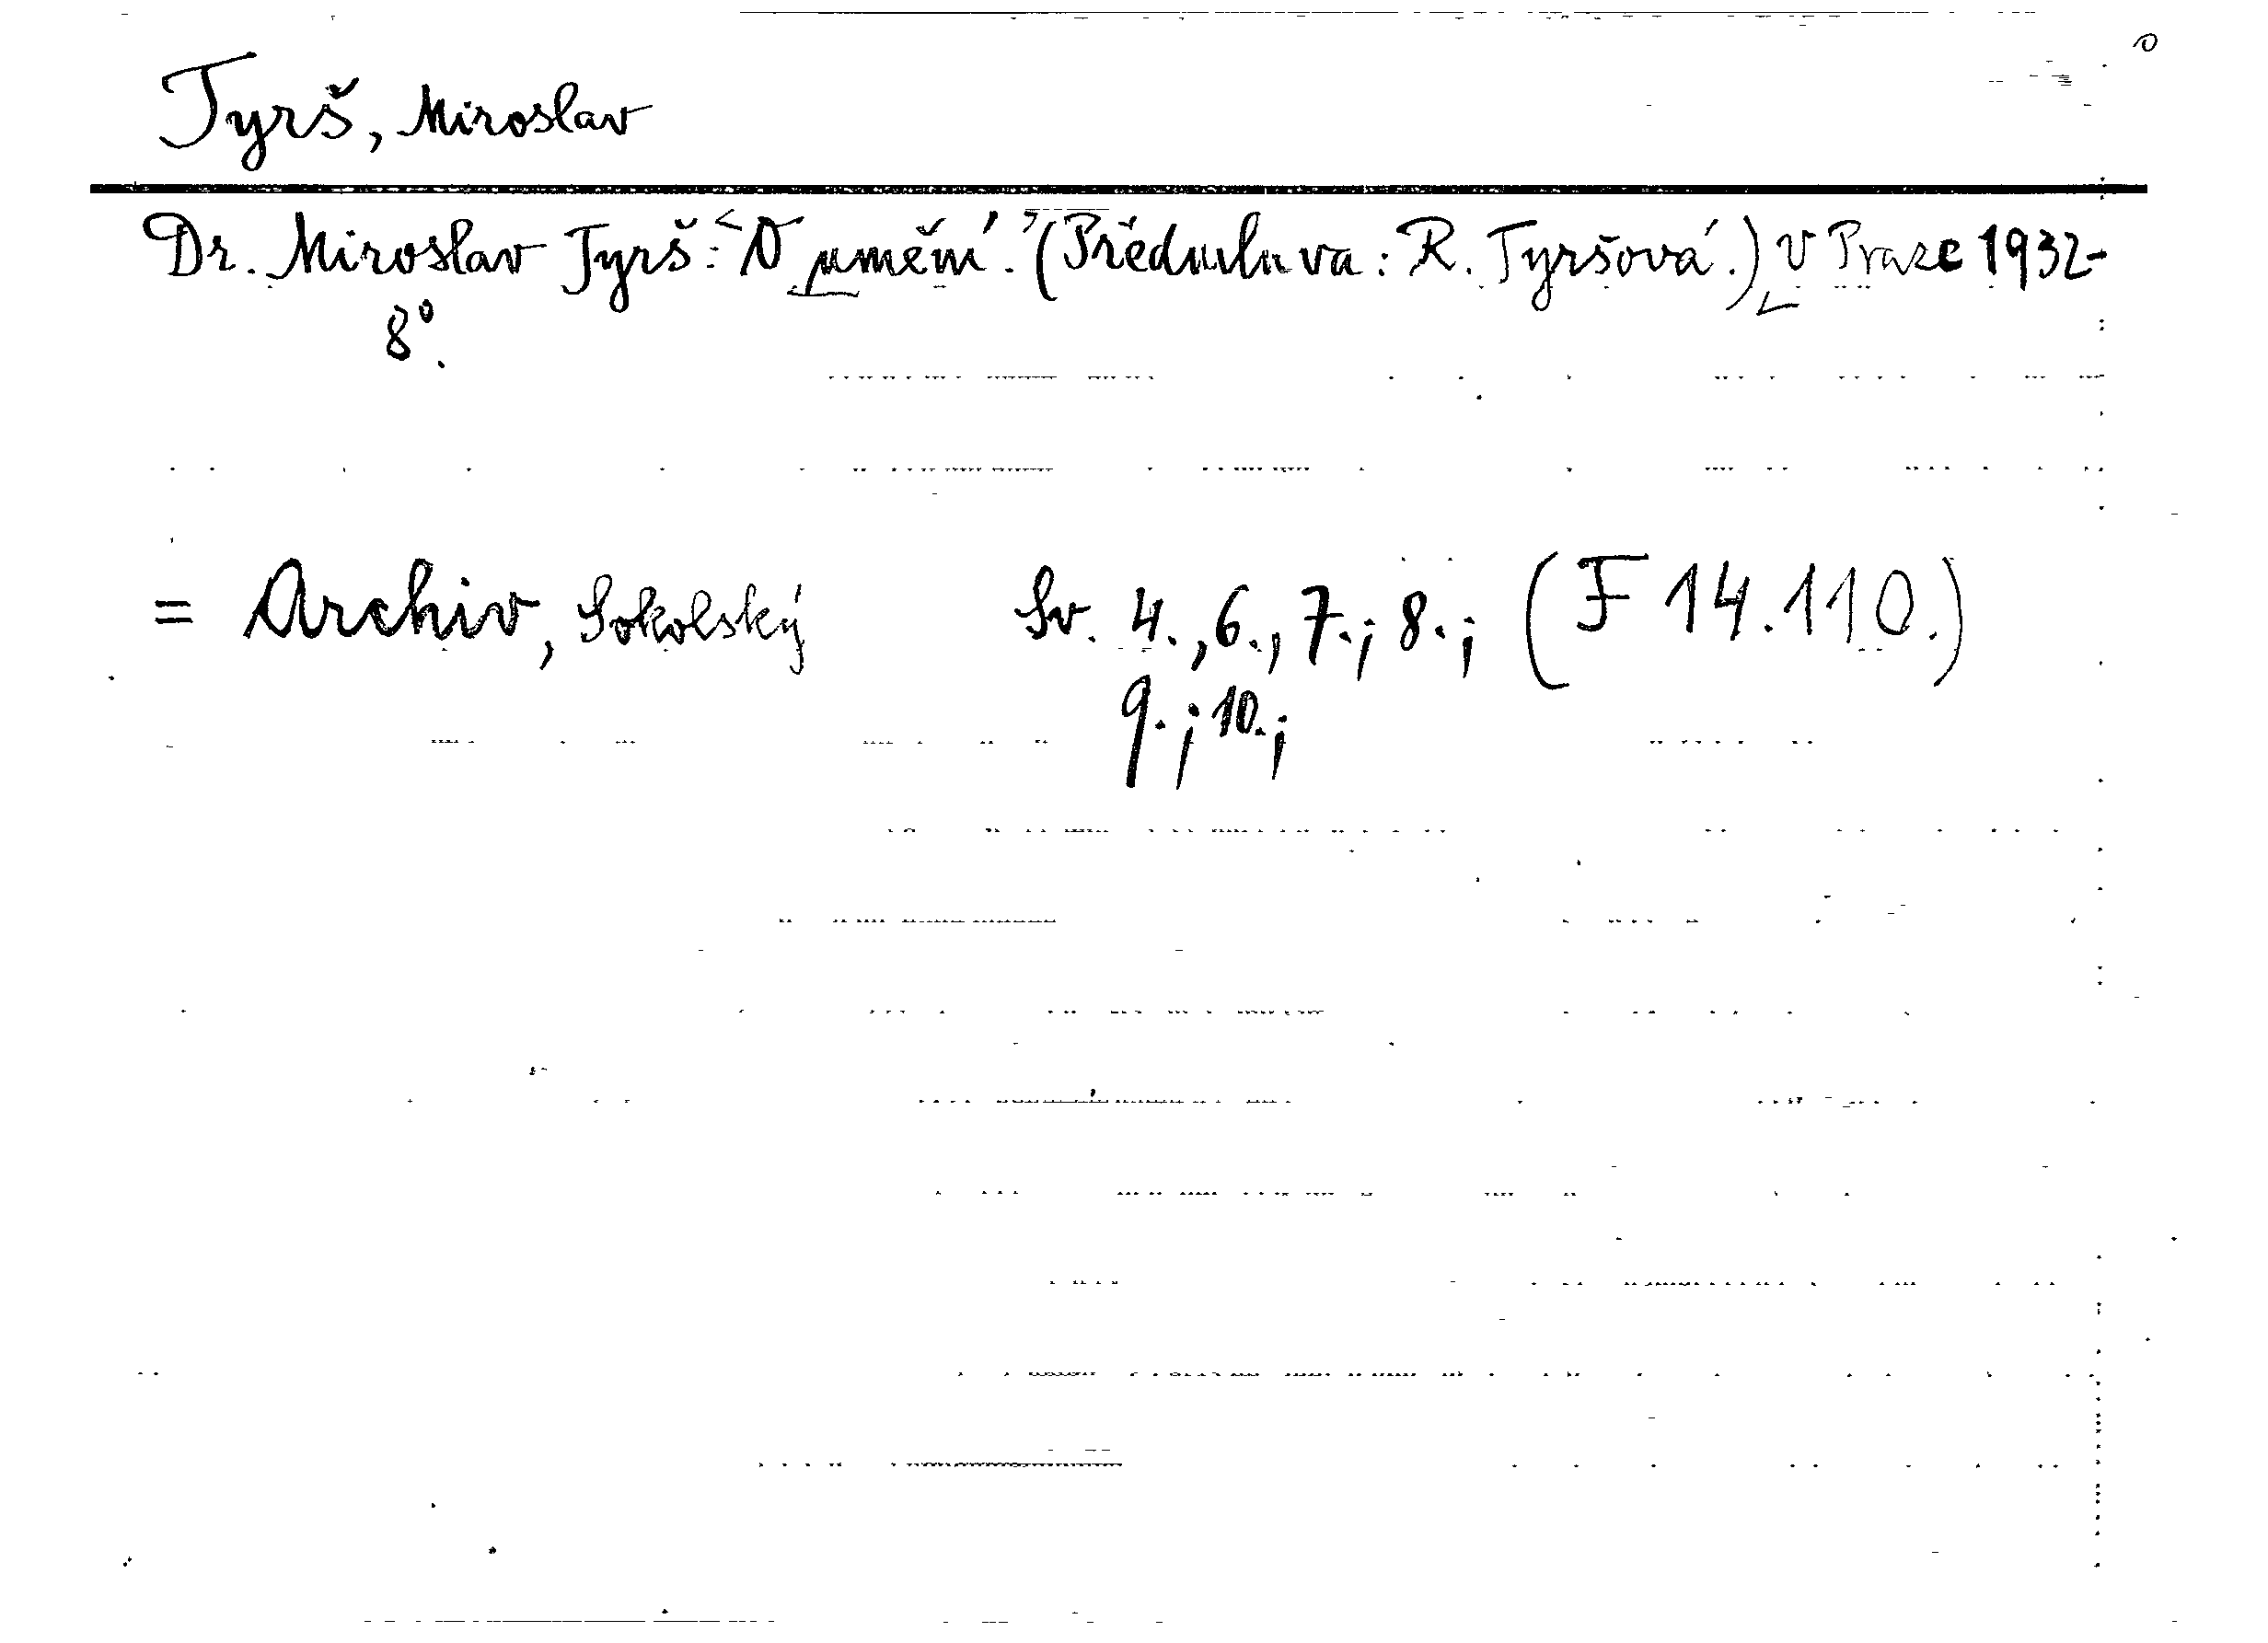 o
Tyrš, Miroslav
Dr. Miroslav Tyrš: O umění. (Předmluva: R. Tyršová.) V Praze 1932-
8°.
= Archiv, Sokolský Sv. 4., 6., 7.; 8.; (F 14.110.)
9.; 10.;